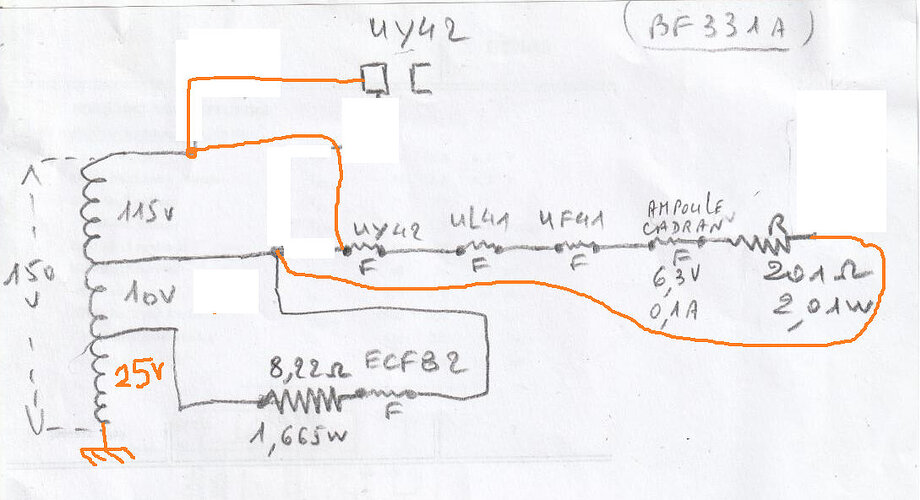 UY42
(BF331A)
115v
150
v
10v
25v
UY42
F
UL41
F
UF41
F
AMPOULE
CADRAN
F
6,3V
0,1A
R
201Ω
2,01W
8,22Ω
1,665W
ECF82
F